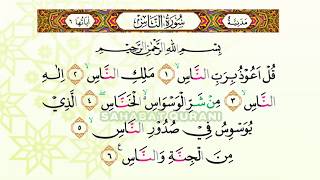 مدنية سُورَةُ النَّاسِ آياتها ٦
بِسْمِ اللَّهِ الرَّحْمَٰنِ الرَّحِيمِ
قُلْ اَعُوْذُ بِرَبِّ النَّاسِ ١ مَلِكِ النَّاسِ ٢ اِلٰهِ
النَّاسِ ٣ مِنْ شَرِّ الْوَسْوَاسِ الْخَنَّاسِ ٤ الَّذِيْ
SAHABAT QURANI
يُوَسْوِسُ فِيْ صُدُوْرِ النَّاسِ ٥
مِنَ الْجِنَّةِ وَالنَّاسِ ٦